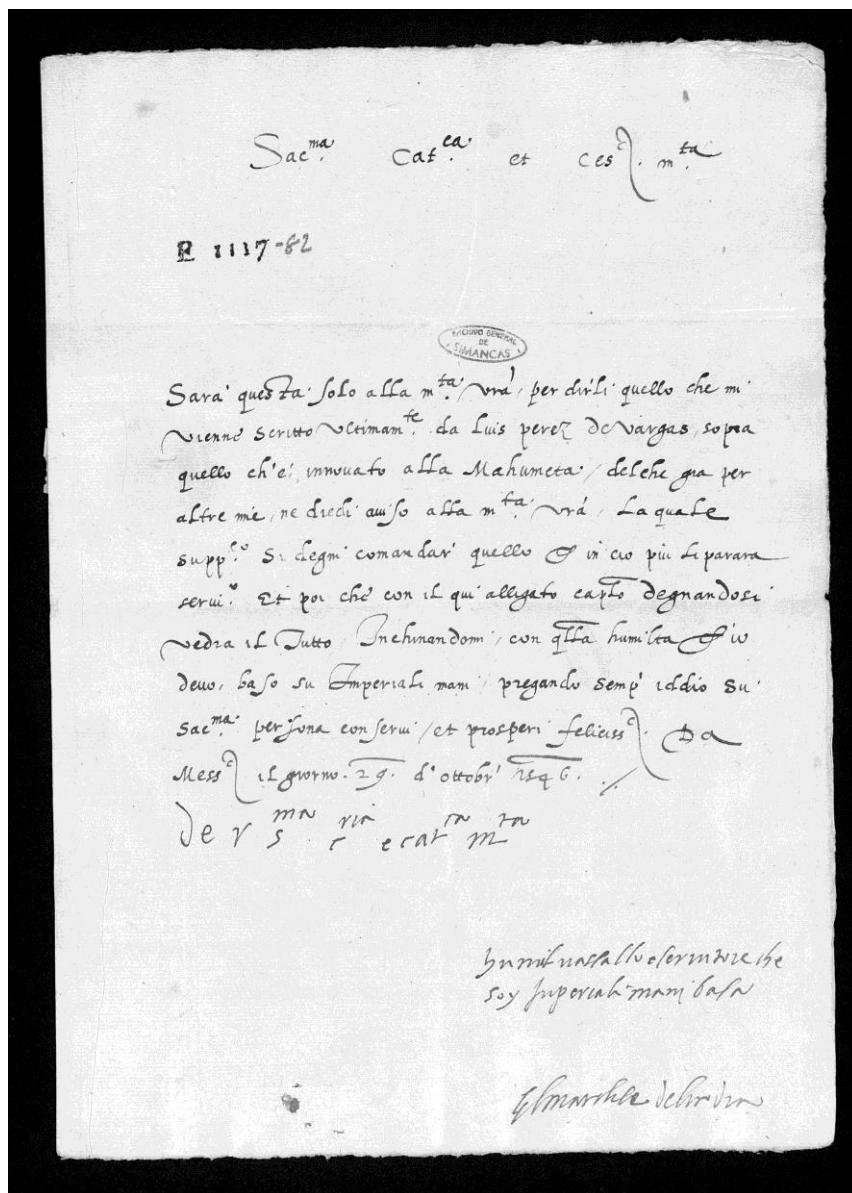 Sac^ma. Cat^ca. et Ces. m^ta.
E 1117-82
ARCHIVO GENERAL
DE
SIMANCAS
Sara questa solo alla m^ta. vrâ, per dirli quello che mi
vienne scritto ultimam^te. da Luis perez de Vargas, sopra
quello ch'e innovato alla Mahumeta, delche gia per
altre mie, ne diedi auiso alla m^ta. vrâ, La quale
supp^co si degni comandar' quello ch' in cio piu li parara
serui^o. Et poi che con il qui alligato degnandosi
vedra il Tutto, Inchinandomi, con qlla humilta ch'io
deuo, baso su Imperiali mani, pregando semp' iddio su
Sac^ma. persona conserui, et prosperi feliciss. Da
Mess il giorno. 29. d'ottobr' 1546.
De V S^ma C^ria e cat^ca M^ta
humil uassallo e seruitore che
soy Inperiali mani basa